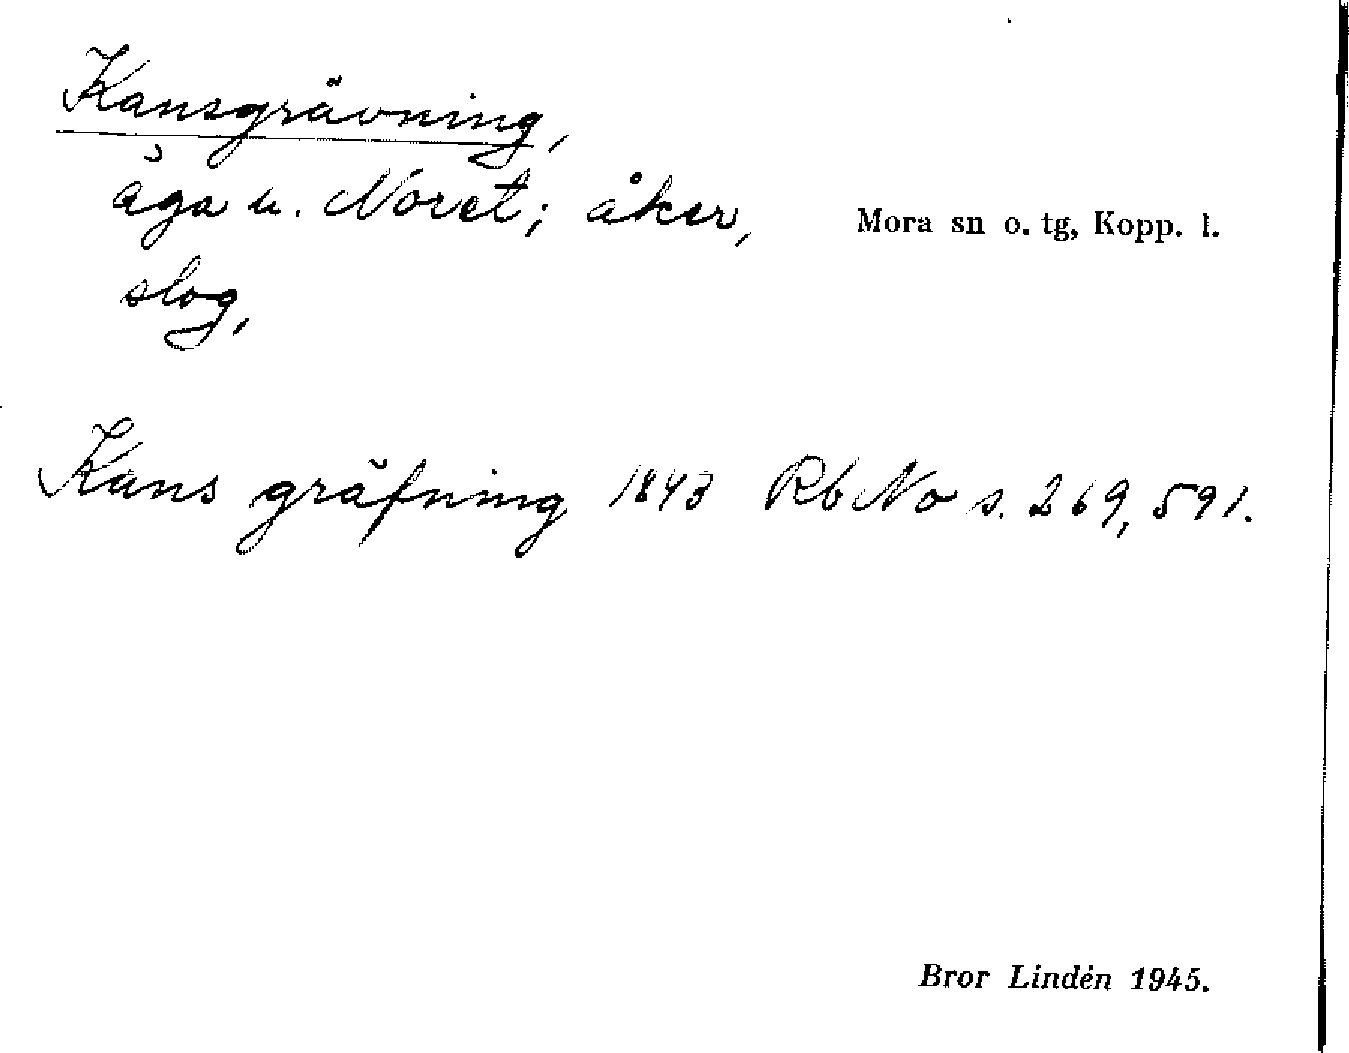 Kansgrävning,
äga u. Noret; åker,
Mora sn o. tg, Kopp. l.
slog,
Kans gräfning 1843 Rb No s. 269, 591.
Bror Lindén 1945.